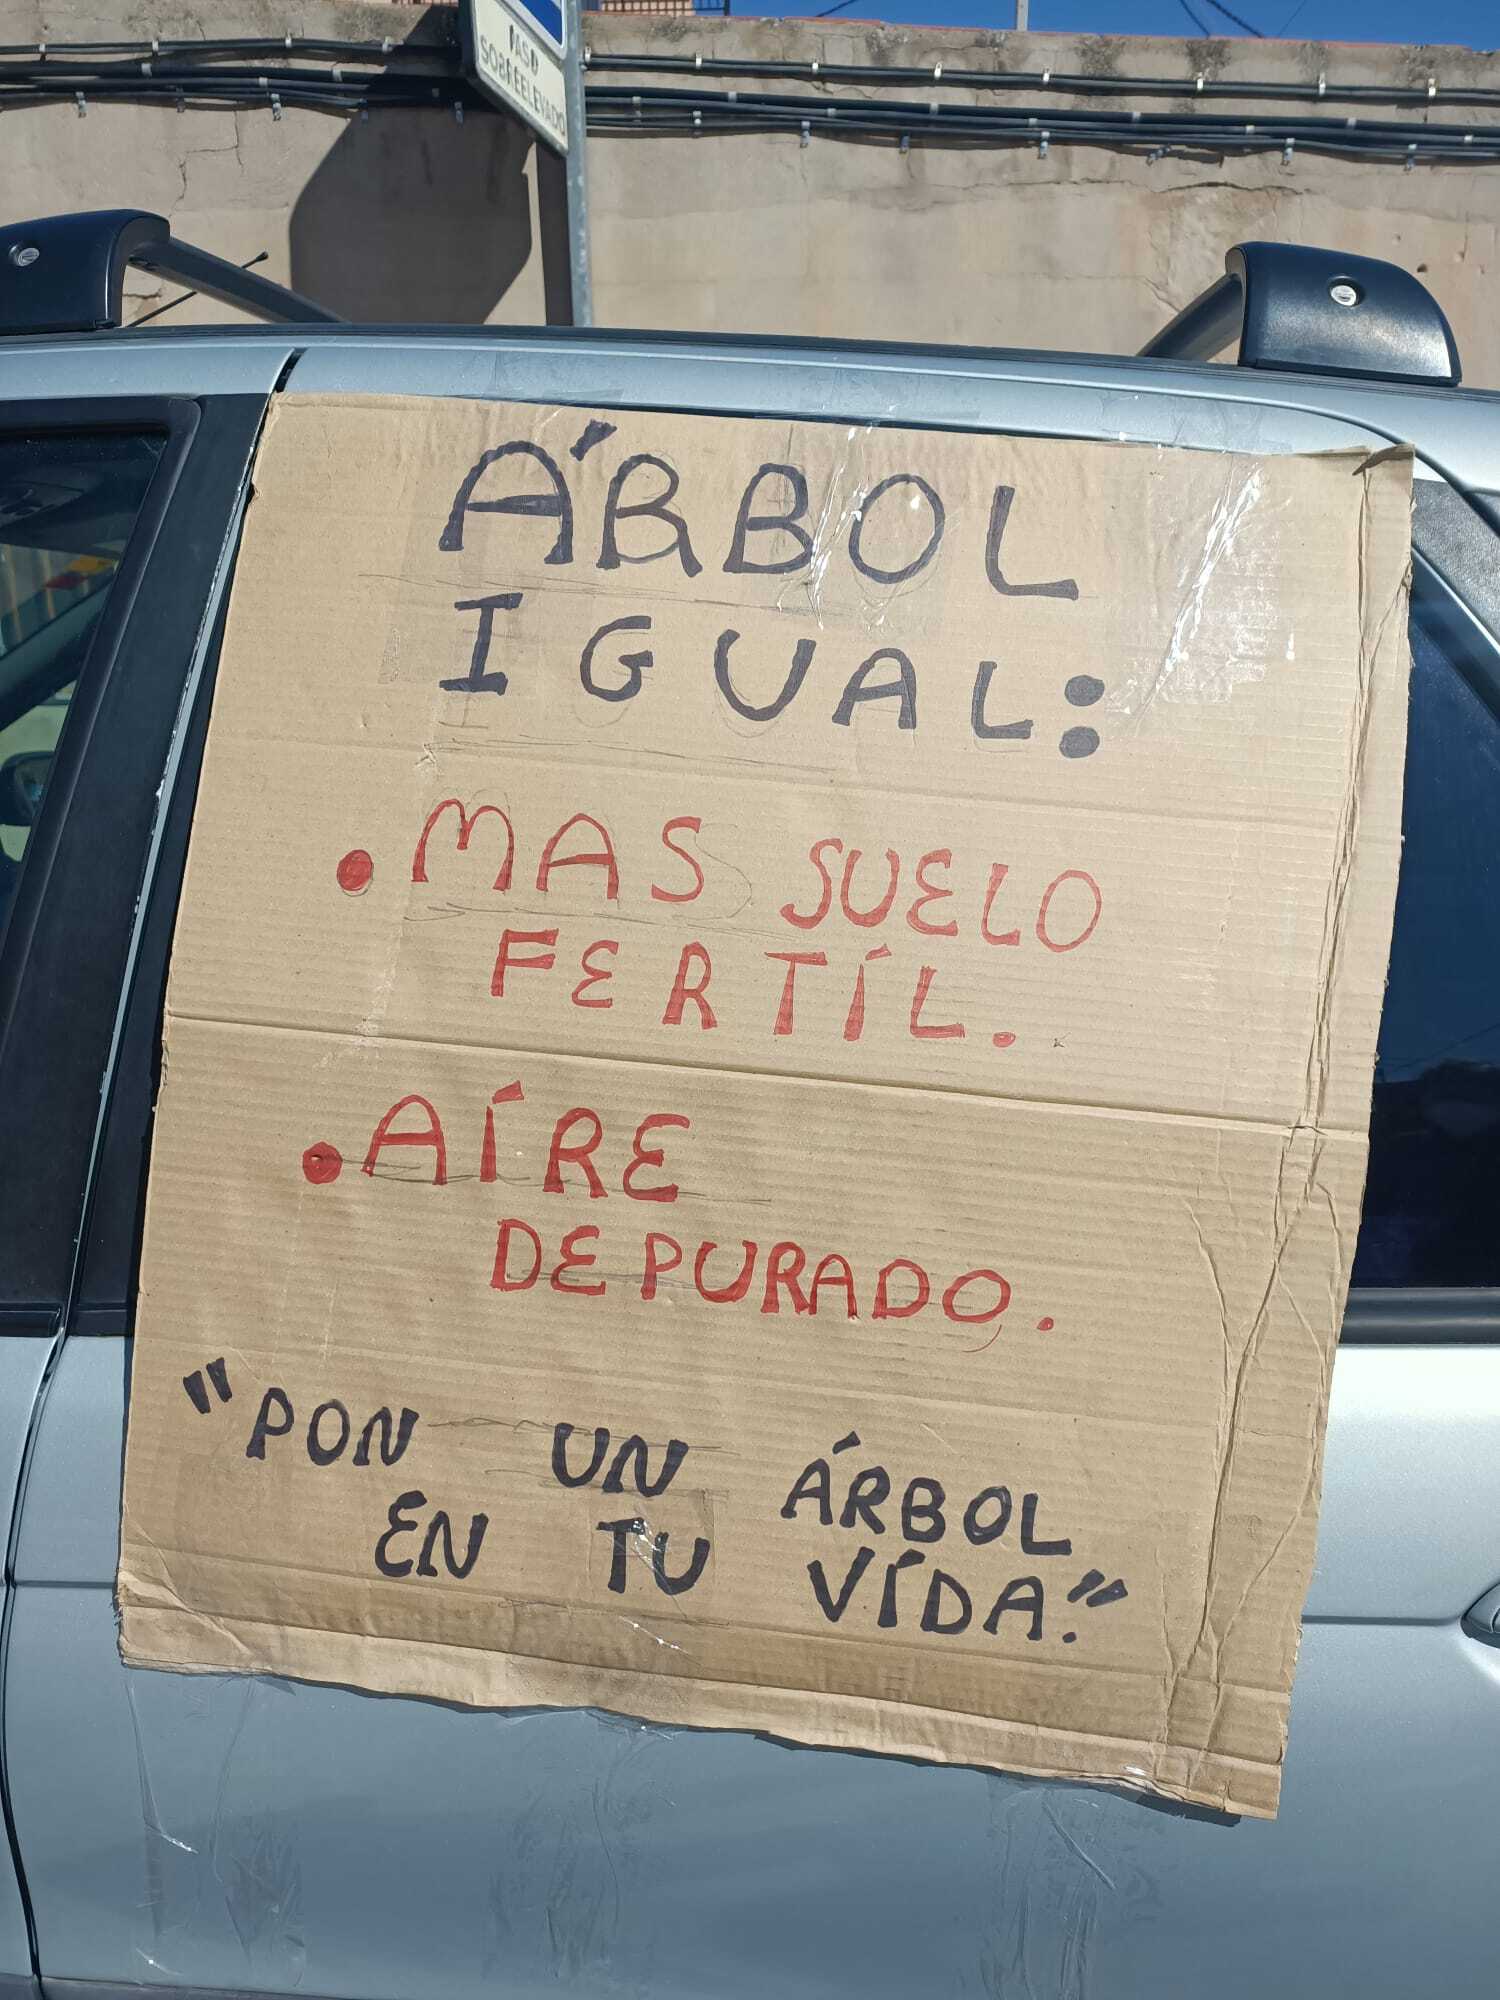 PASO
SOBREELEVADO
ÁRBOL
IGUAL:
. MAS SUELO
FERTÍL.
. AÍRE
DEPURADO.
"PON UN ÁRBOL
EN TU VÍDA."